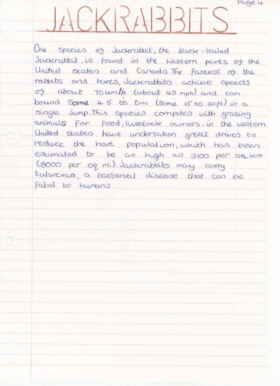 Page 4
JACKRABBITS
One species of Jackrabbit, the black-tailed
Jackrabbit is found in the western parts of the
United States and Canada. The fastest of the
rabbits and hares, Jackrabbits achieve speeds
of about 70 km/h (about 45 mph) and can
bound some 4.5 to 6m (some 15 to 20ft) in a
single Jump. This species competes with grazing
animals for food, livestock owners in the western
United States have undertaken great drives to
reduce the hare population, which has been
estimated to be as high as 3100 per sq km
(8000 per sq mi). Jackrabbits may carry
tularemia, a bacterial disease that can be
fatal to humans